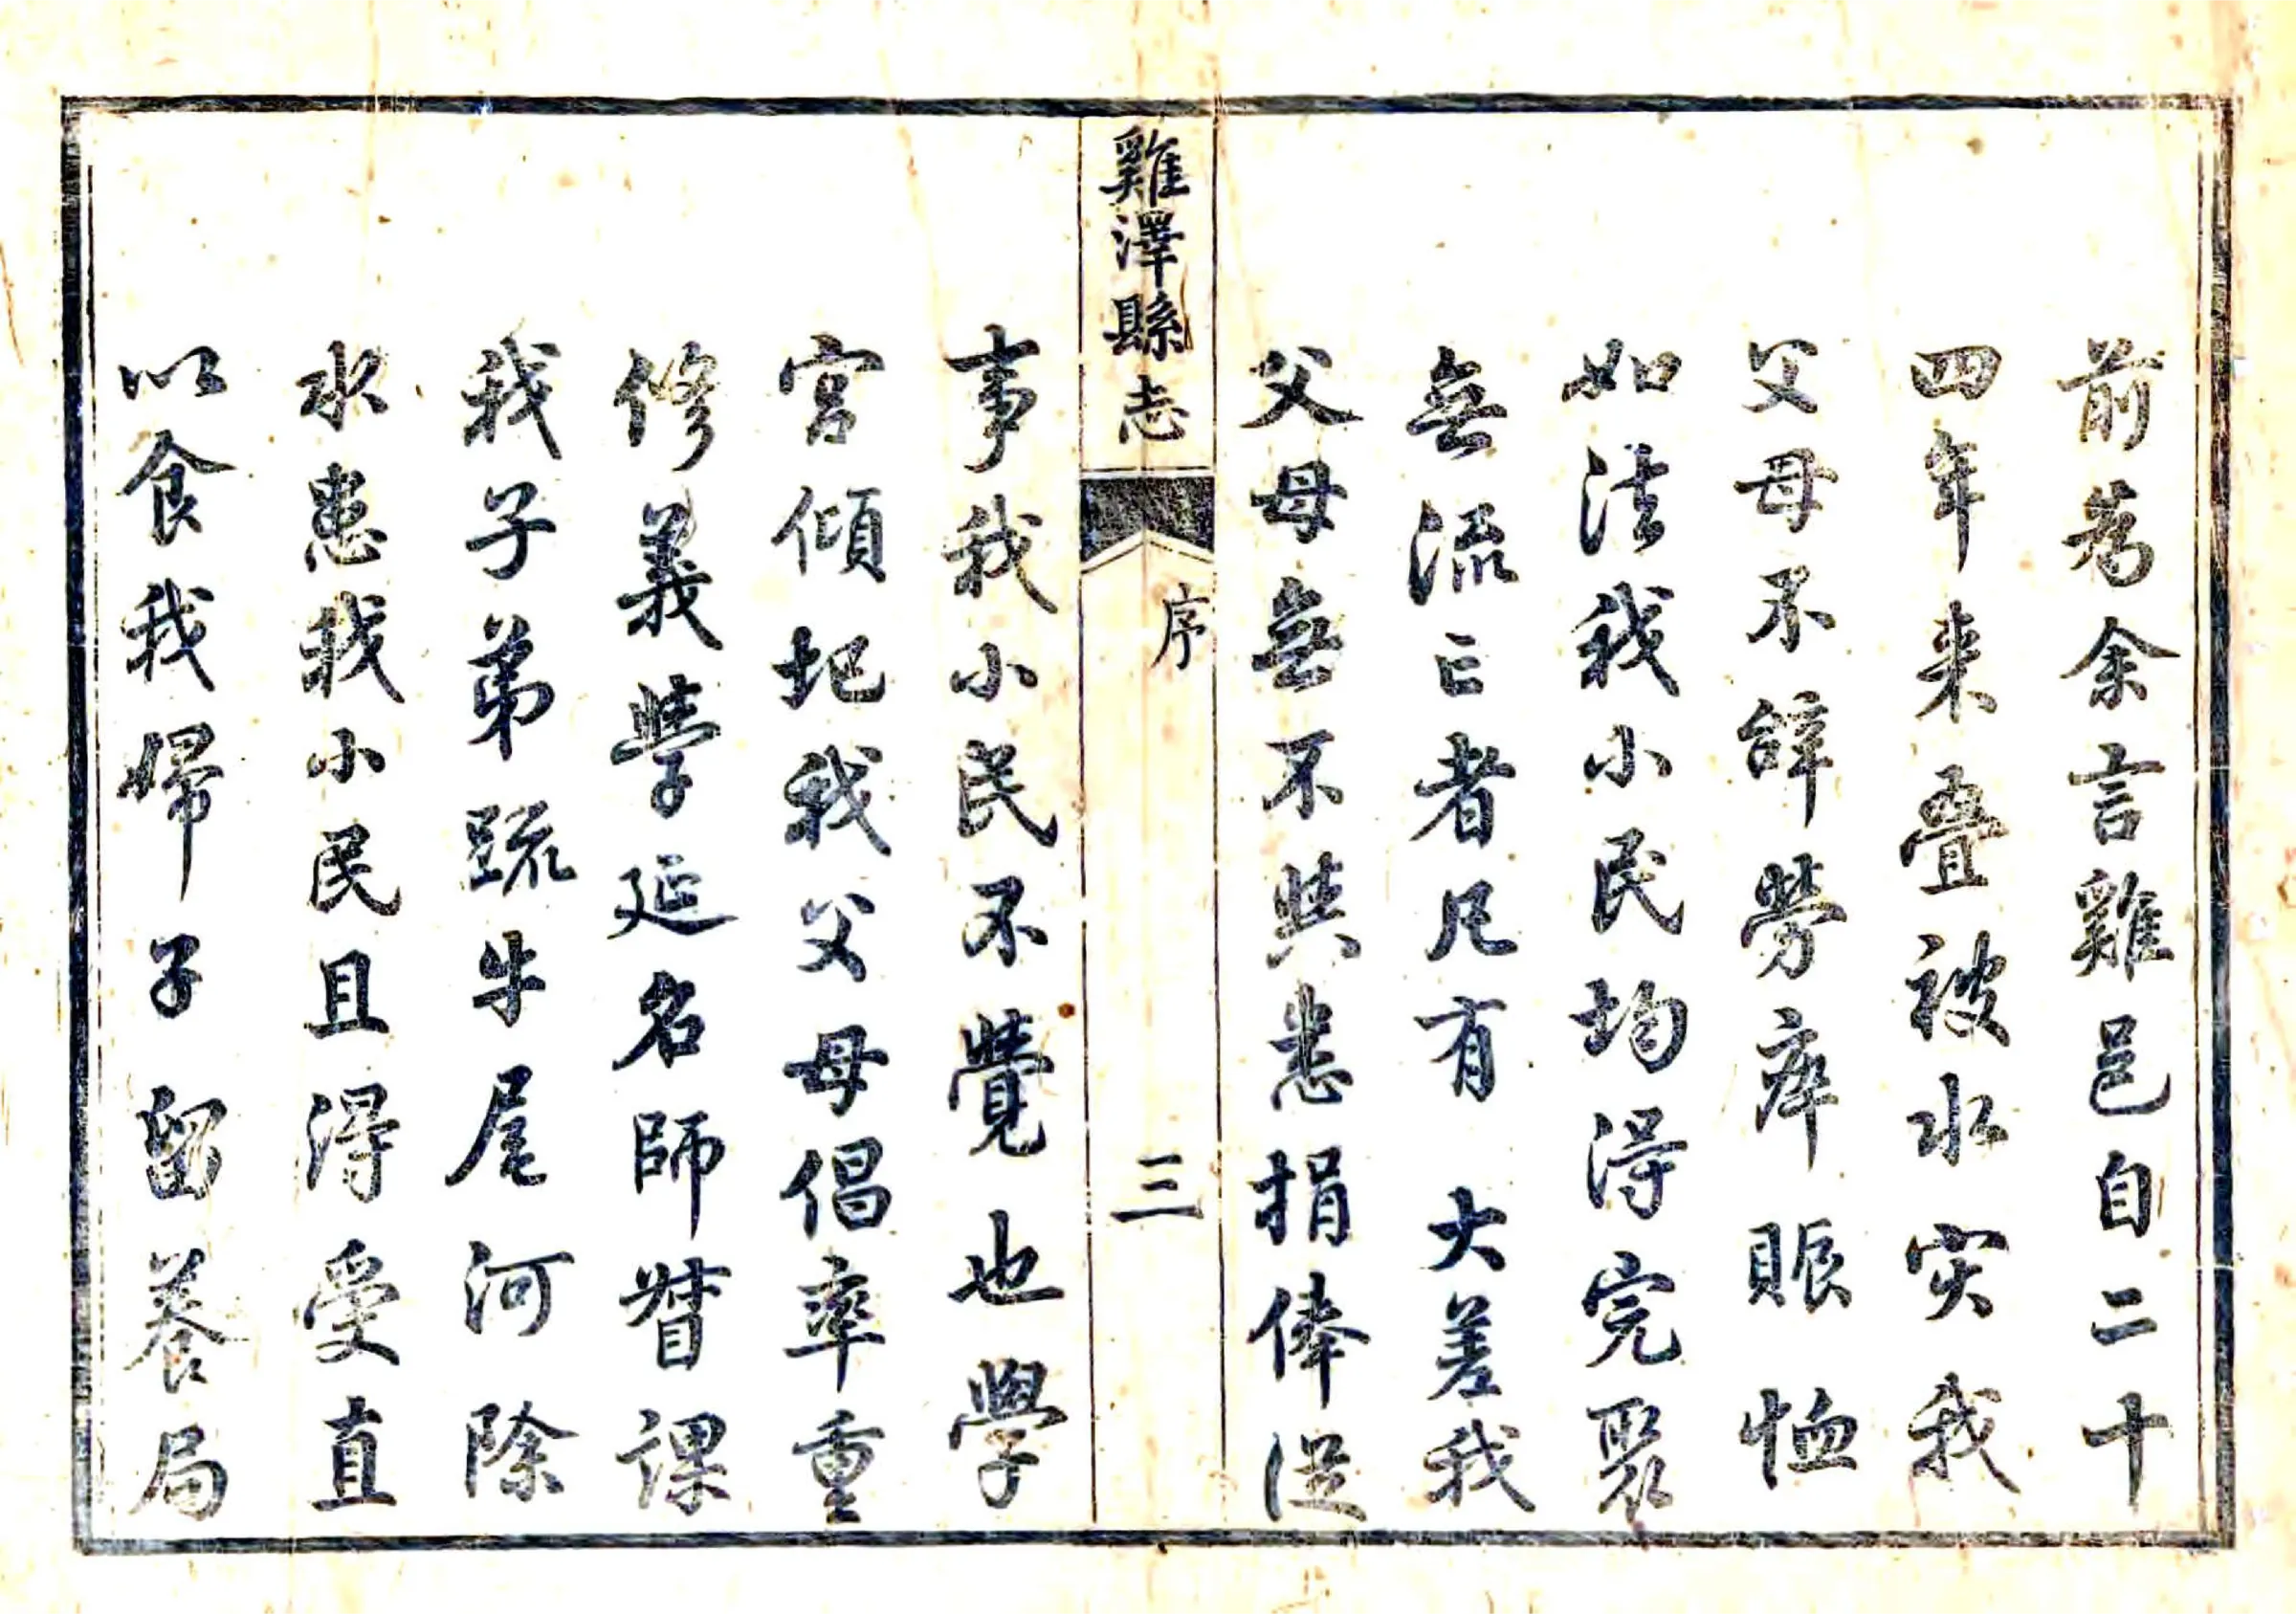 前爲余言雞邑自二十
四年来疊被水灾我
父母不辞勞瘁賑恤
如法我小民均得完聚
無流亡者凡有大差我
父母無不與悉捐俸從
雞澤縣志
序
三
事我小民不覺也學
宮傾圮我父母倡率重
修義學延名師督課
我子弟疏牛尾河除
水患我小民且得受直
以食我婦子留養局